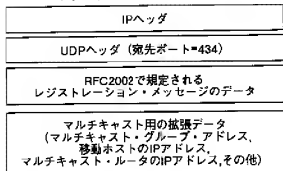 IPヘッダ
UDPヘッダ (宛先ポート=434)
RFC2002で規定される
レジストレーション・メッセージのデータ
マルチキャスト用の拡張データ
(マルチキャスト・グループ・アドレス、
移動ホストのIPアドレス、
マルチキャスト・ルータのIPアドレス,その他)